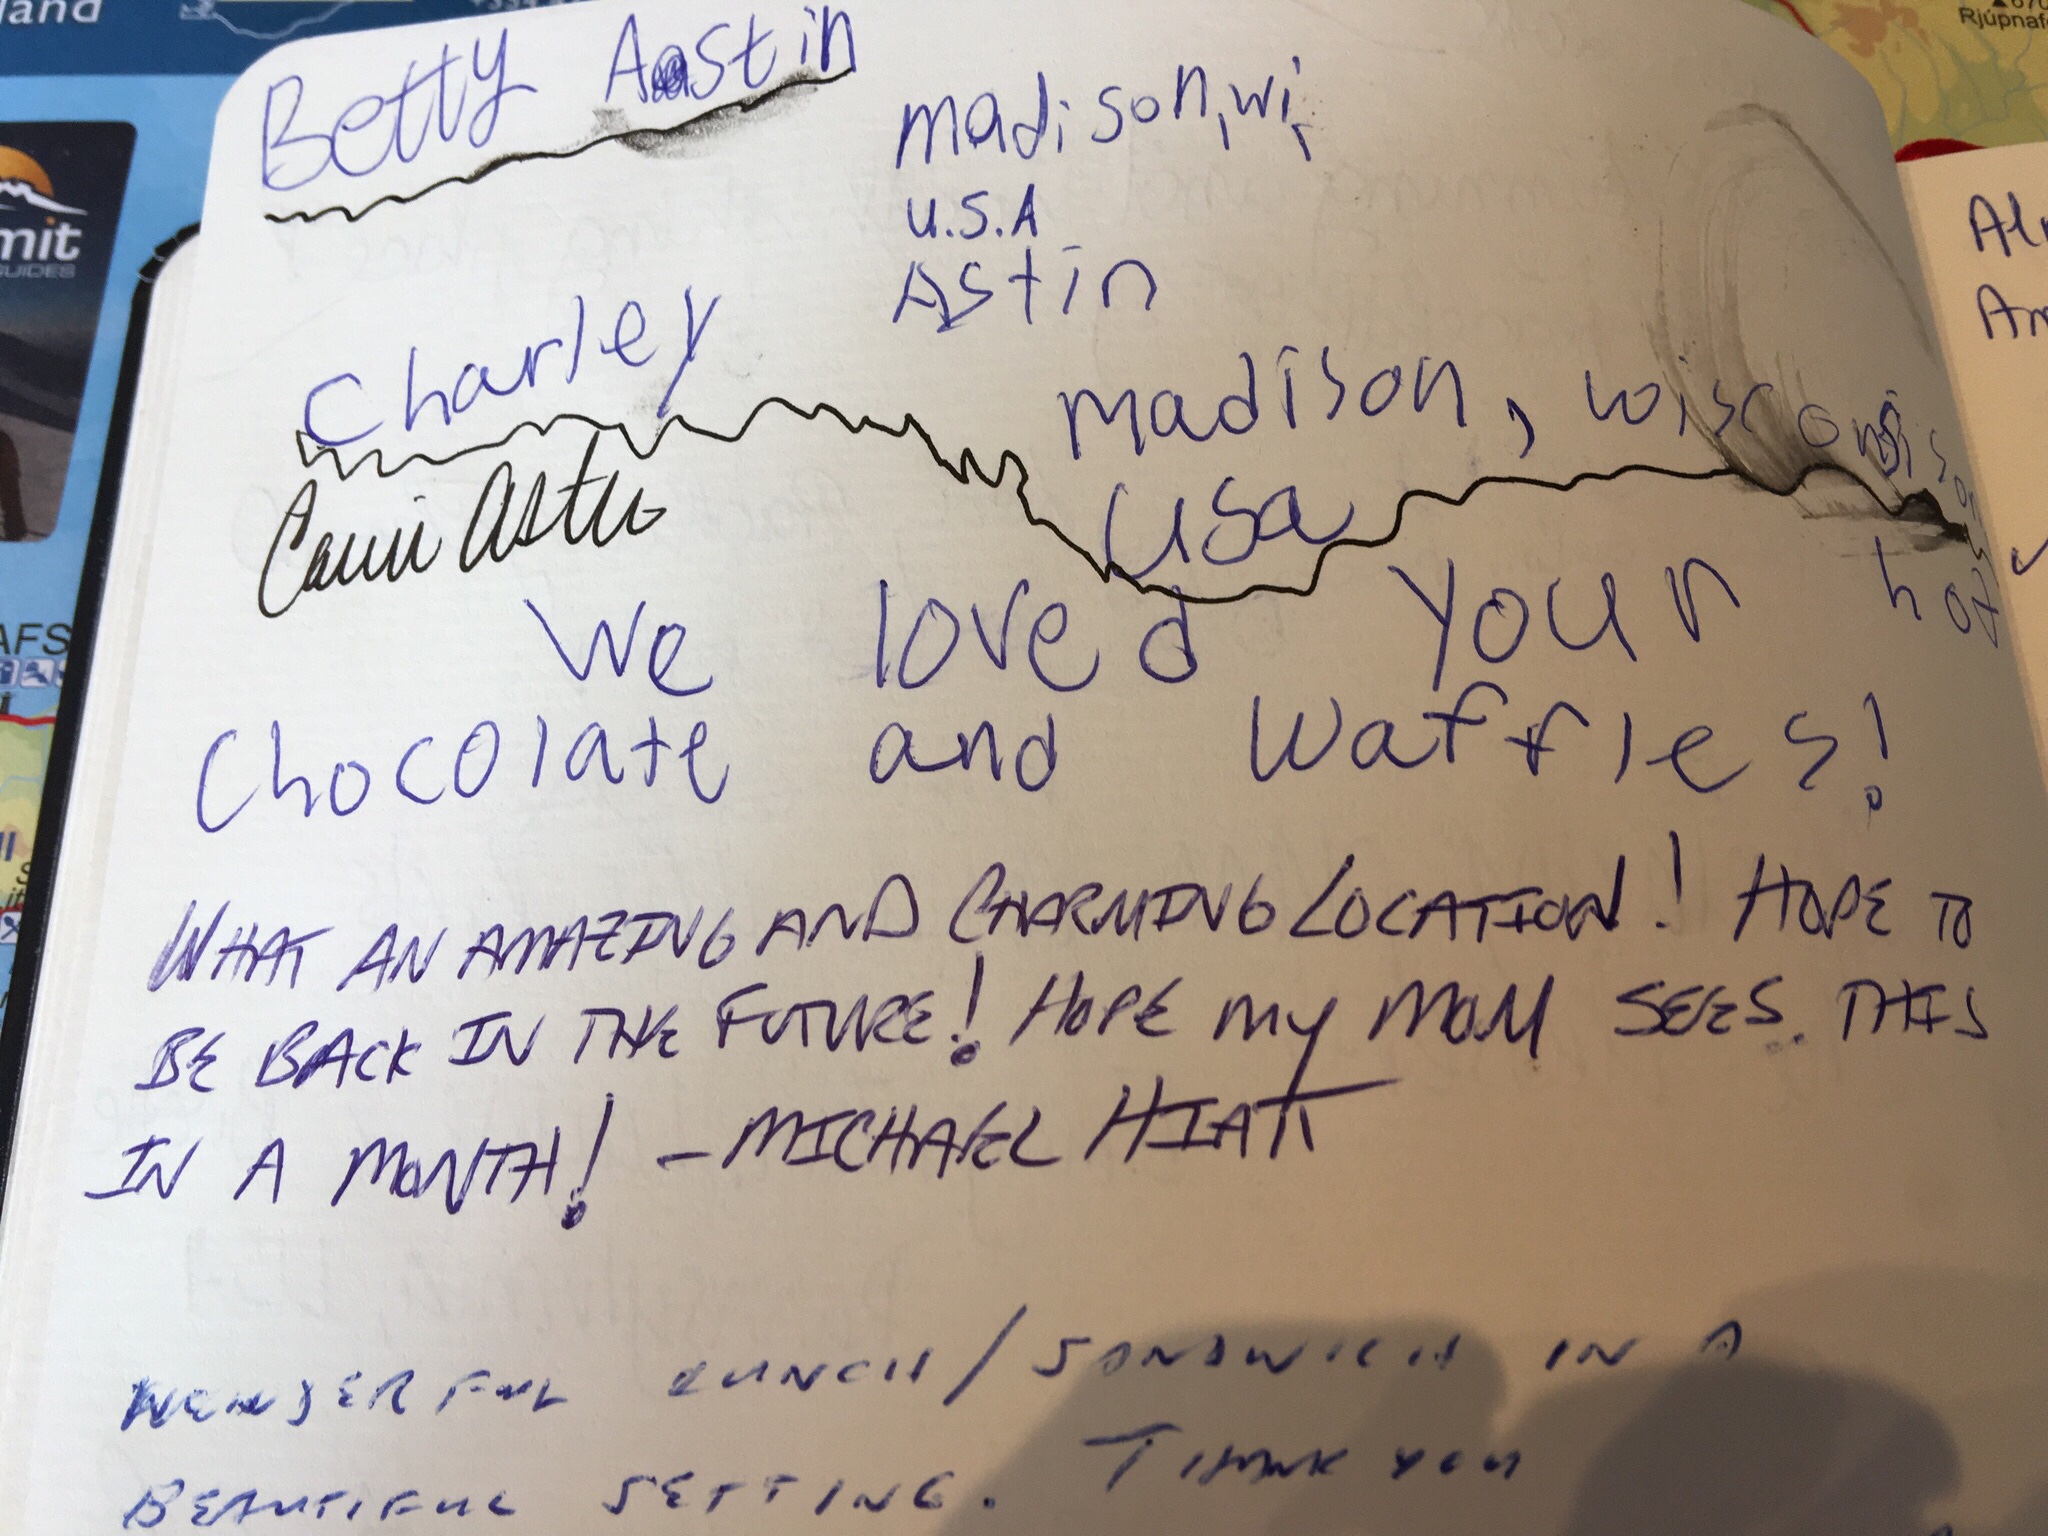 land
Rjúpnaf
mit
GUIDES
AFS
Betty Astin
madison, wi,
U.S.A
Charley Astin
madison, wisconsin
usa
We loved your hot
Chocolate and waffles!
WHAT AN AMAZING AND CHARMING LOCATION! HOPE TO
BE BACK IN THE FUTURE! HOPE MY MOM SEES THIS
IN A MONTH! - MICHAEL HIATT
WONDERFUL LUNCH/SANDWICH IN A
BEAUTIFUL SETTING. THANK YOU